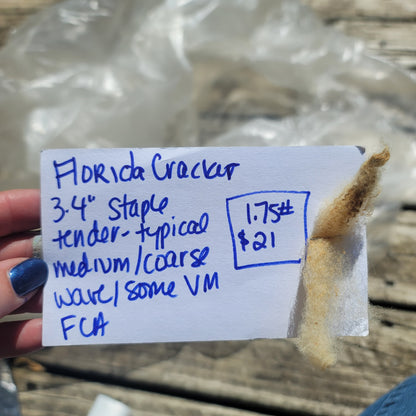 Florida Cracker
3.4" Staple
tender-typical
medium/coarse
wave/some VM
FCA
1.75#
$21